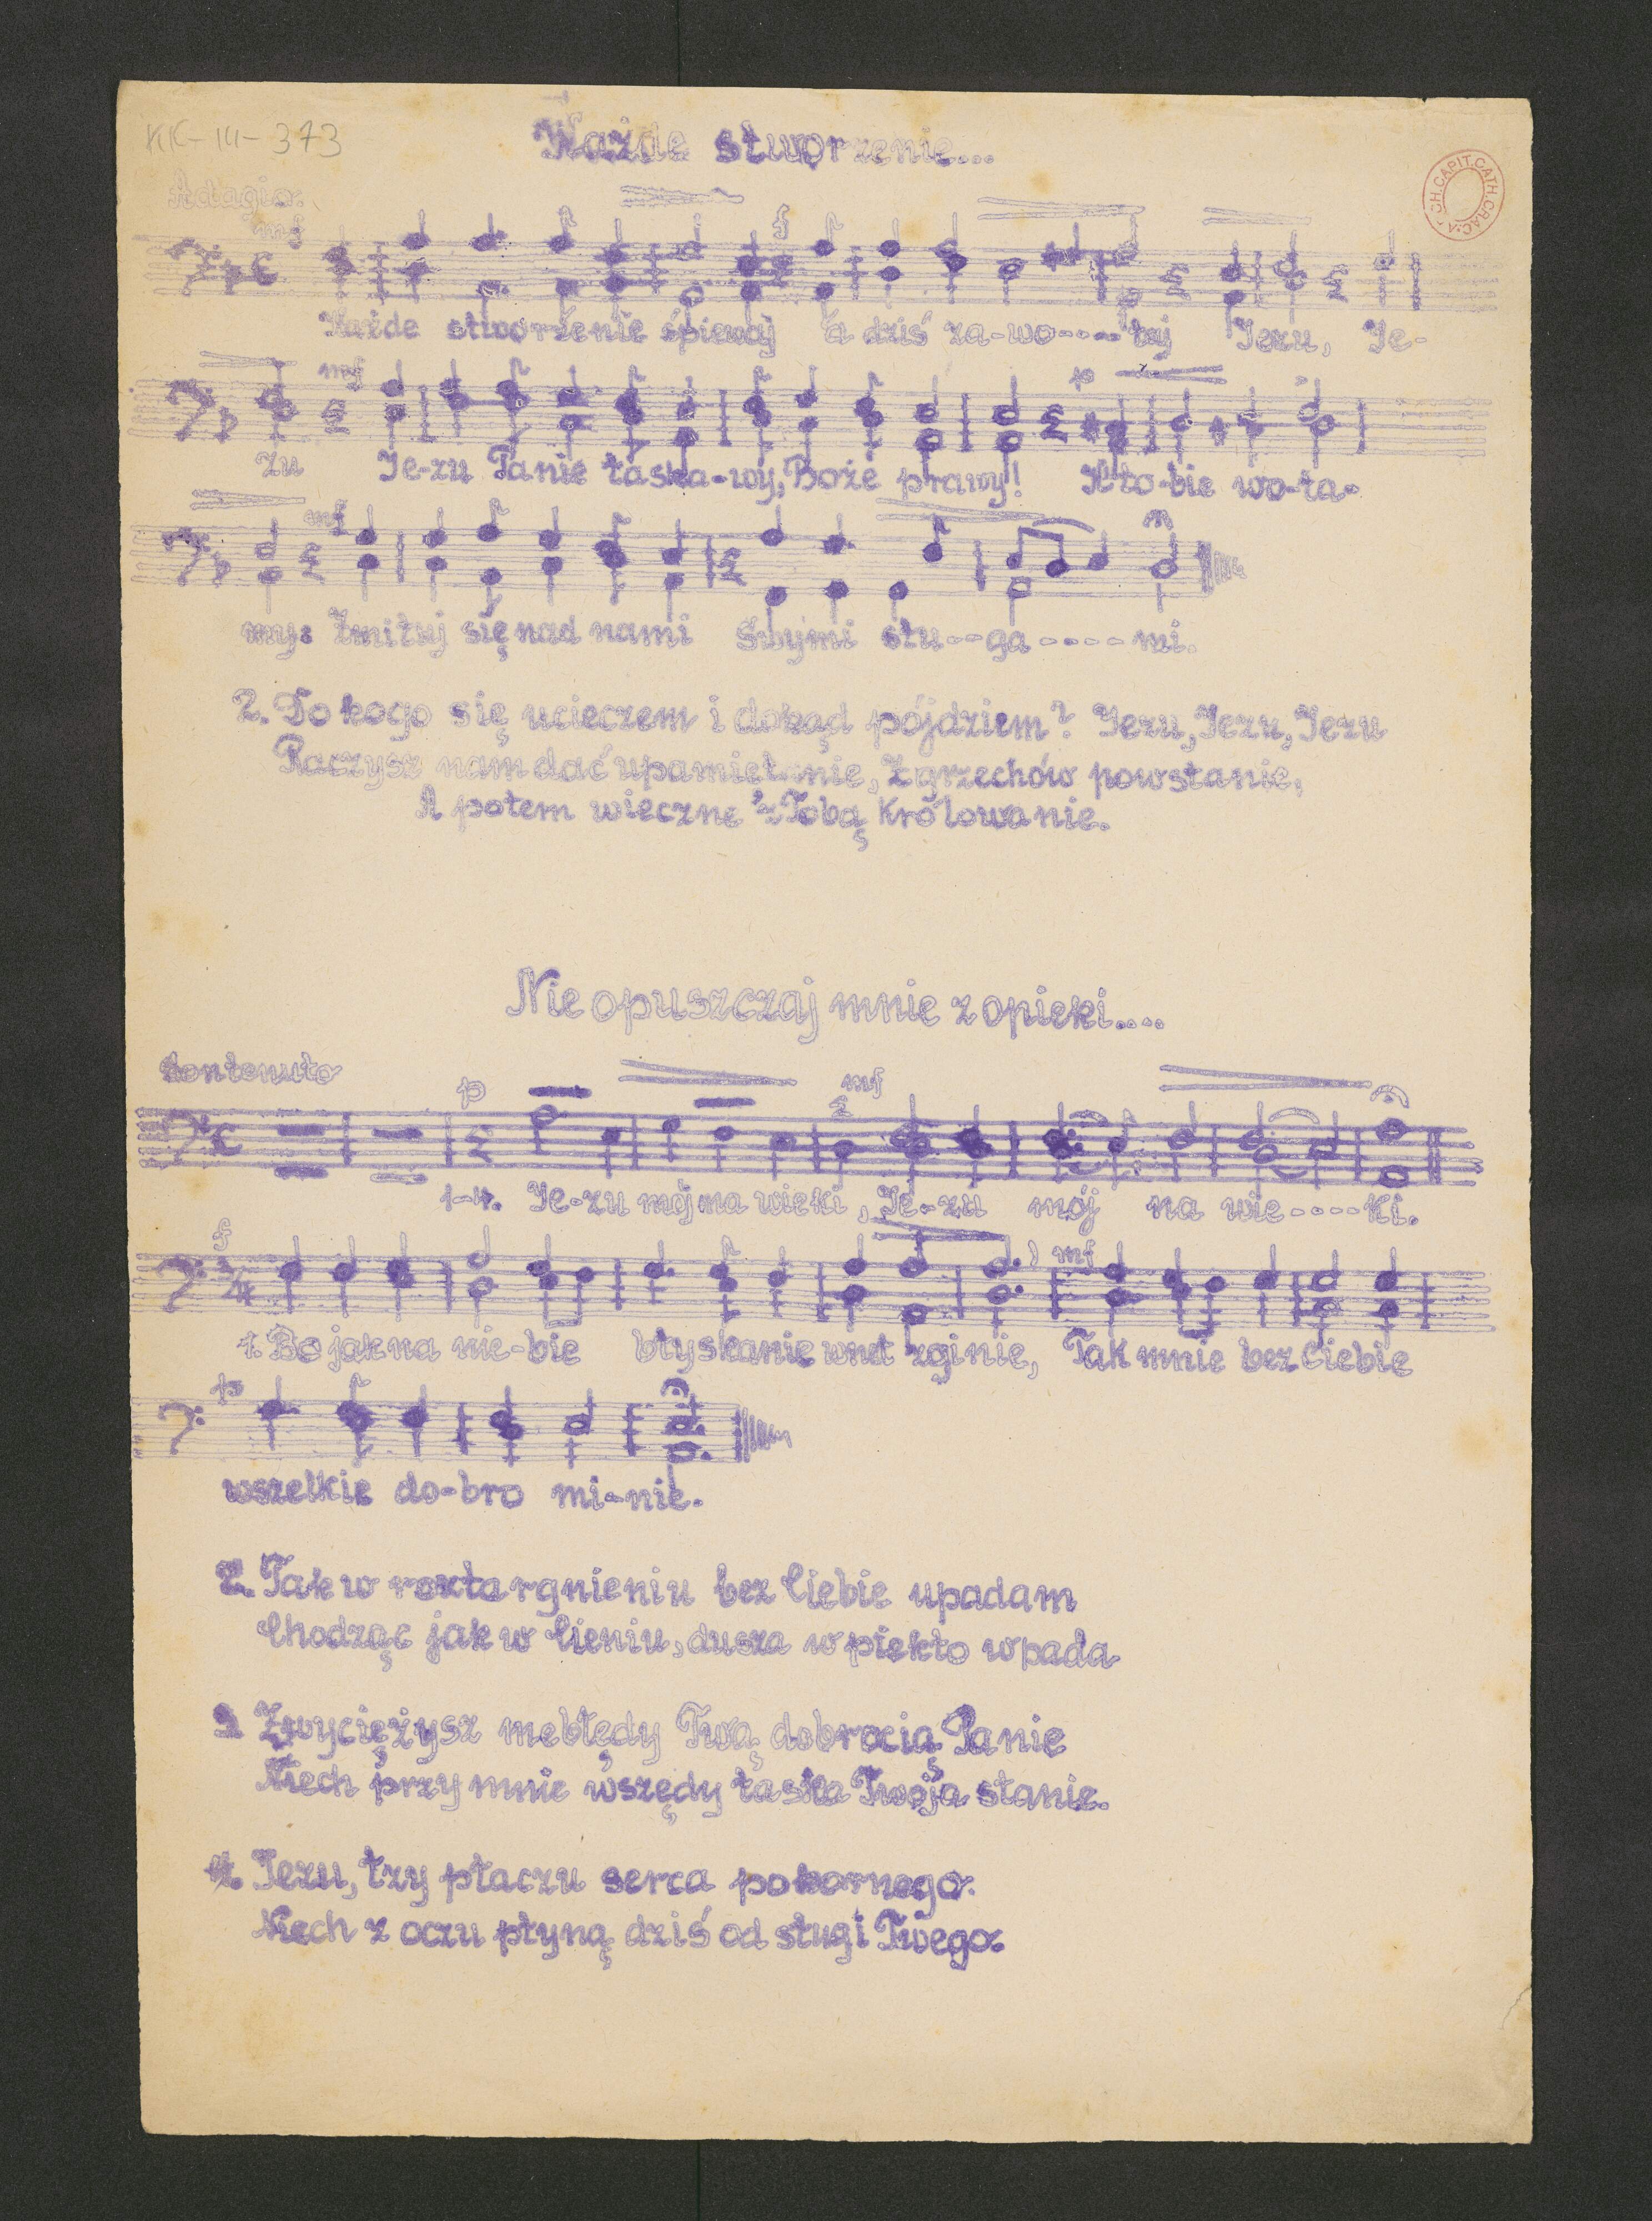 KK-III-373
Każde stworzenie...
ARCH.CAPIT.CATH.CRAC.
Adagio:
mf f
Każde stworzenie śpiewaj a dziś za-wo---- łaj Jezu, Je-
mf p
zu Je-zu Panie łaska-wy, Boże prawy! K'to-bie wo-ła-
mf
my: Zmiłuj się nad nami Swymi słu--ga---- mi.
2. Do kogo się ucieczem i dokąd pójdziem? Jezu, Jezu, Jezu
Raczysz nam dać upamiętanie, z grzechów powstanie,
A potem wieczne z Tobą Królowanie.
Nie opuszczaj mnie z opieki....
Sontenuto
p mf
1-4. Je-zu mój na wieki, Je-zu mój na wie----ki.
f mf
1. Bo jak na nie-bie błyskanie wnet zginie, Tak mnie bez Ciebie
p
wszelkie do-bro mi-nie.
2. Tak w roztargnieniu bez Ciebie upadam
Chodząc jak w Cieniu, dusza w piekło wpada
3 Zwyciężysz me błędy Twą dobrocią Panie
Niech przy mnie wszędy łaska Twoja stanie.
4. Jezu, łzy płaczu serca pokornego.
Niech z oczu płyną dziś od sługi Twego.